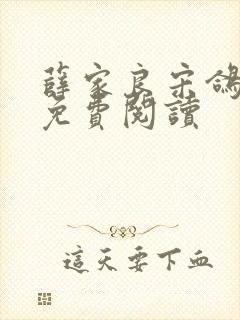 薛家良宋鴿
免費閱讀
這天要下血